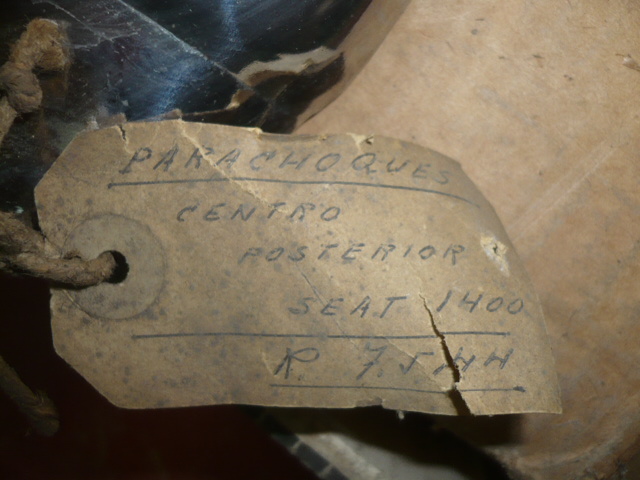 PARACHOQUES
CENTRO
POSTERIOR
SEAT 1400
R. 7.544